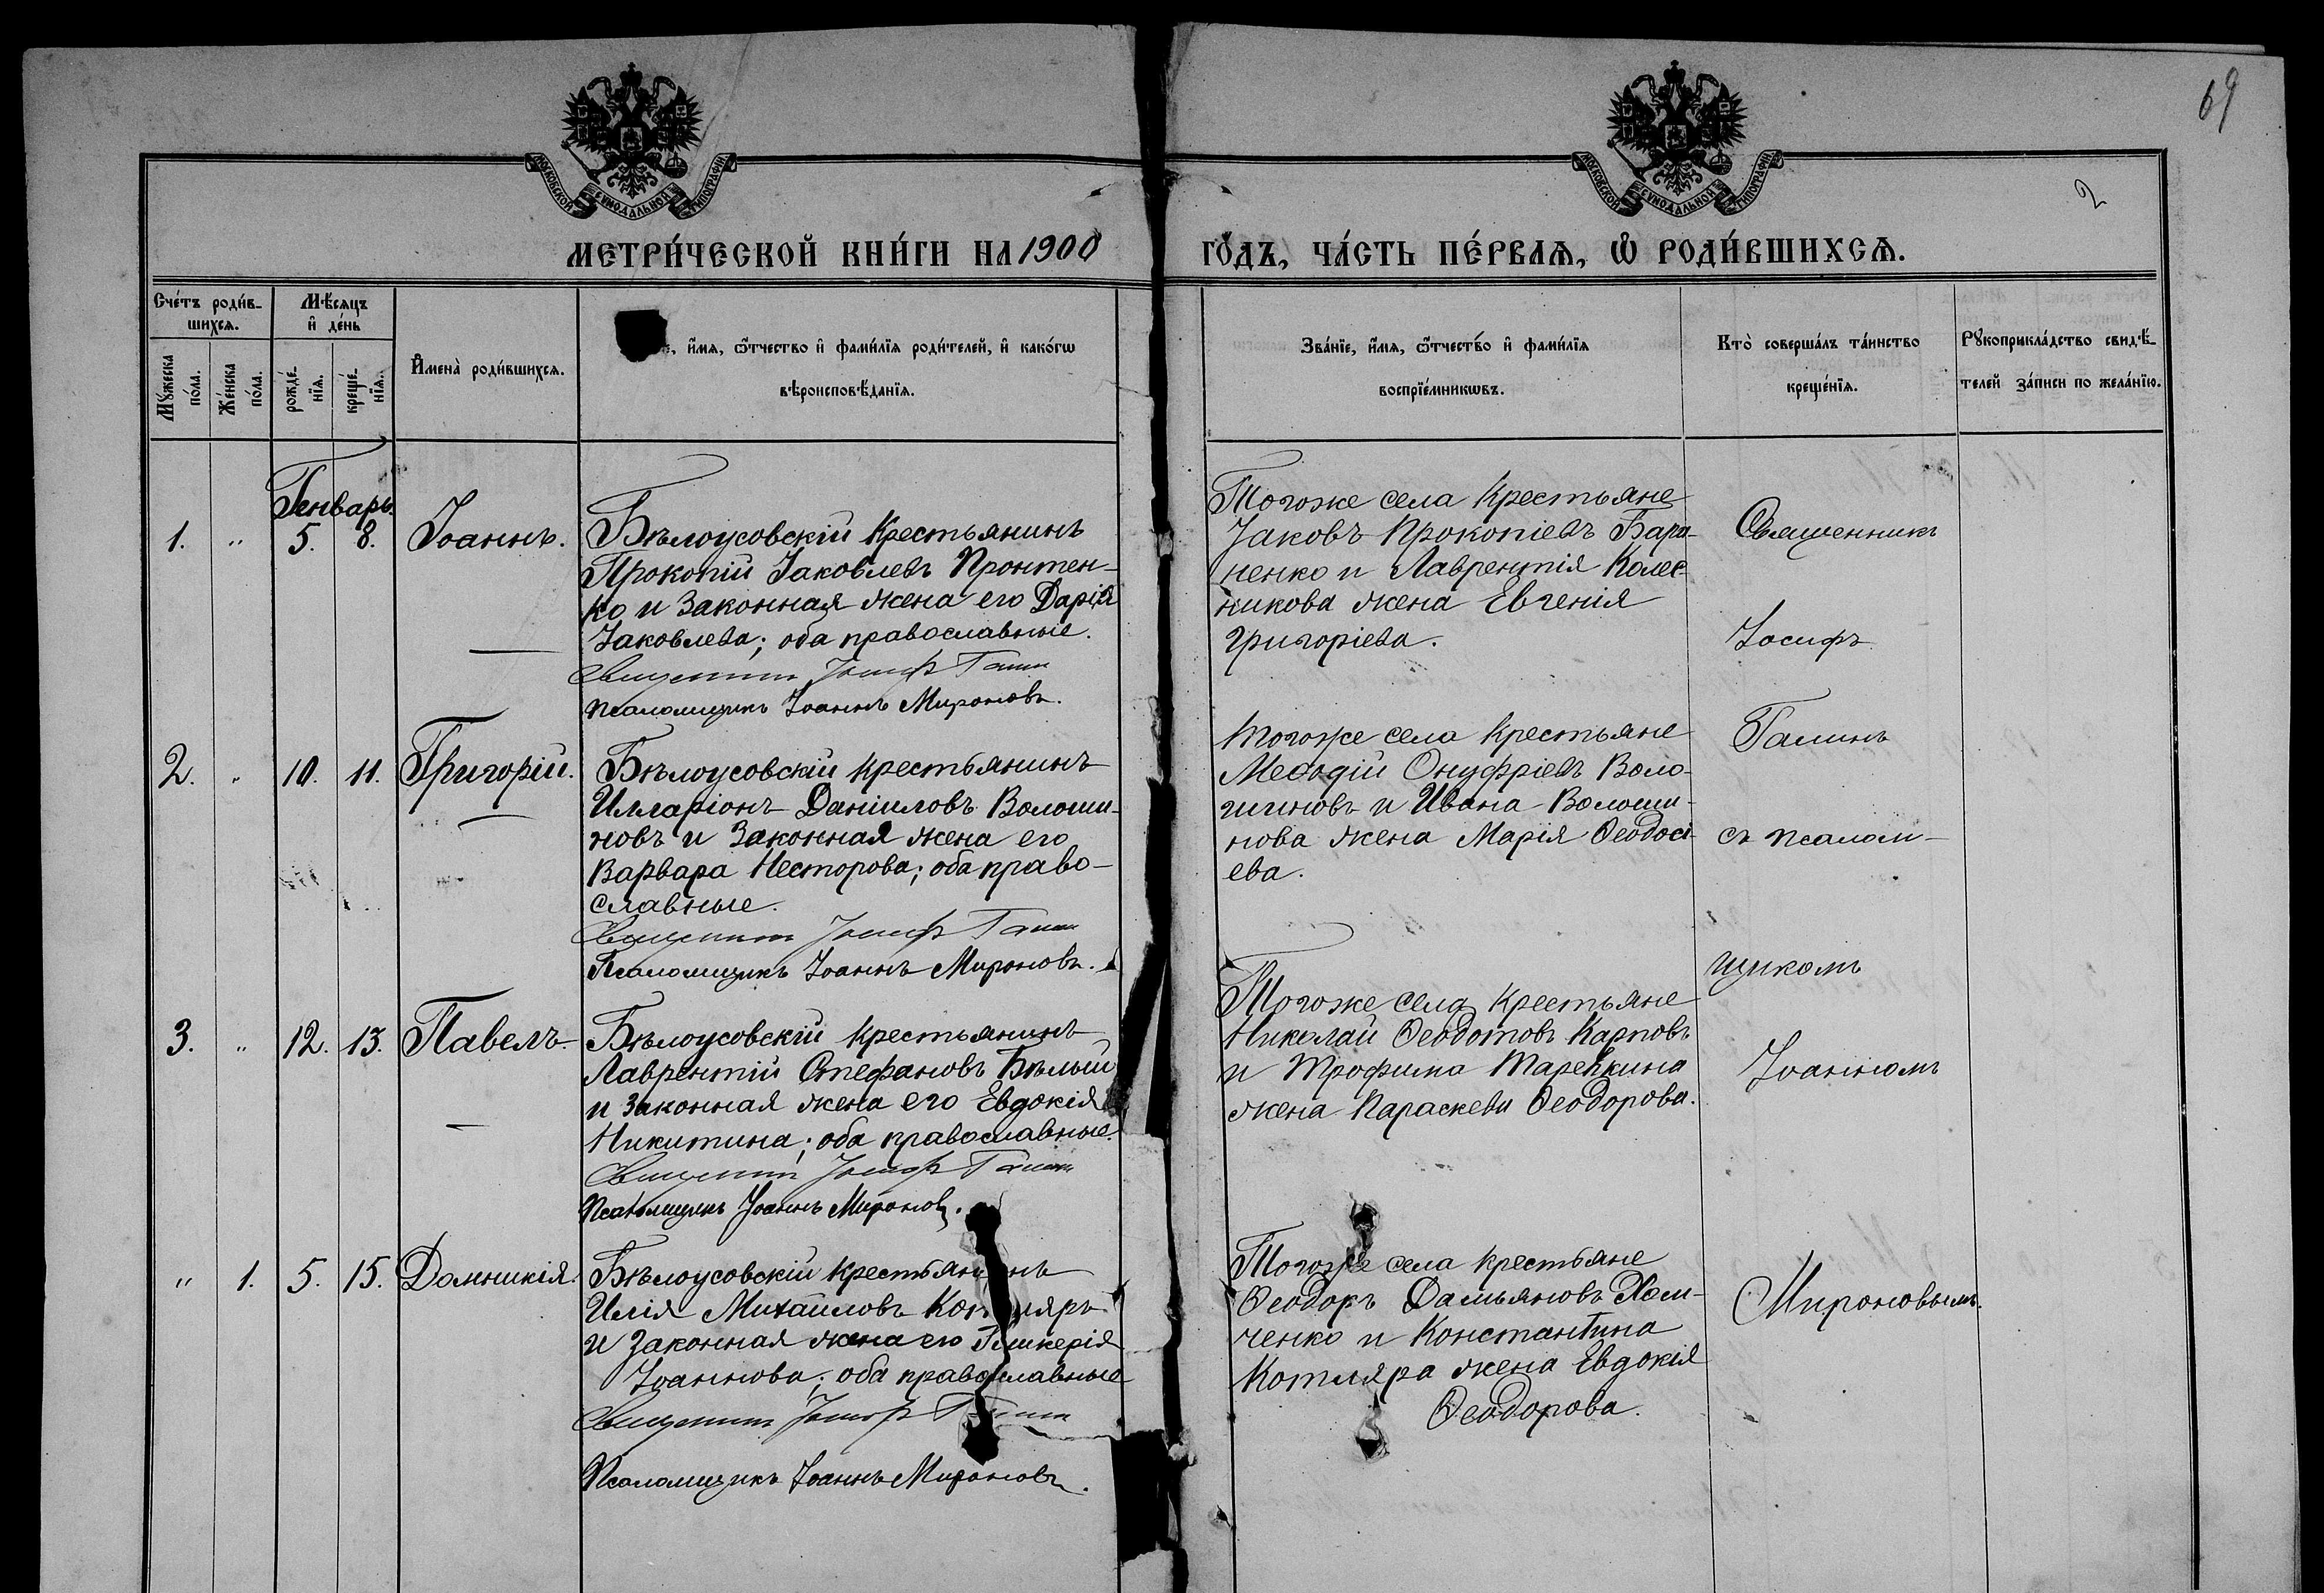 69
2
МОСКОВСКОЙ СѴНОДАЛЬНОЙ ТИПОГРАФІИ
МОСКОВСКОЙ СѴНОДАЛЬНОЙ ТИПОГРАФІИ
МЕТРИ́ЧЕСКОЙ КНИ́ГИ НА 1900
ГО́ДЪ, ЧА́СТЬ ПЕ́РВАѦ, Ѽ РОДИ́ВШИХСѦ.
Сче́тъ роди́в-
шихсѧ.
Мѣ́сѧцъ
и҆ де́нь
Мꙋ́жеска
по́ла.
Же́нска
по́ла.
рожде́-
нїѧ.
креще́-
нїѧ.
И҆мена̀ роди́вшихсѧ.
и҆́мѧ, ѻ҆́тчество и҆ фами́лїѧ роди́телей, и҆ како́гѡ
вѣроисповѣ́данїѧ.
Зва́нїе, и҆́мѧ, ѻ҆́тчество и҆ фами́лїѧ
воспрїе́мникѡвъ.
Кто̀ соверша́лъ та́инство
креще́нїѧ.
Рꙋкоприкла́дство свидѣ́-
телей за́писи по жела́нїю.
Генварь.
1. " 5. 8. Іоаннъ.
Бѣлоусовскій крестьянинъ
Прокопій Іаковлевъ Пронтен-
ко и законная жена его Дарія
Іаковлева; оба православные.
Священникъ Іосифъ Галинъ
Псаломщикъ Іоаннъ Мироновъ.
Тогоже села крестьяне
Іаковъ Прокопіевъ
ненко и Лаврентія Колес-
никова жена Евгенія
Григоріева.
2. " 10. 11. Григорій.
Бѣлоусовскій крестьянинъ
Илларіонъ Даніиловъ Волоши-
новъ и законная жена его
Варвара Несторова; оба право-
славные.
Священникъ Іосифъ Галинъ
Псаломщикъ Іоаннъ Мироновъ.
Тогоже села крестьяне
Меѳодій Онуфріевъ Воло-
шиновъ и Ивана Волоши-
нова жена Марія Ѳеодосі-
ева.
3. " 12. 13. Павелъ.
Бѣлоусовскій крестьянинъ
Лаврентій Стефановъ Бѣлый
и законная жена его Евдокія
Никитина; оба православные.
Священникъ Іосифъ Галинъ
Псаломщикъ Іоаннъ Мироновъ.
Тогоже села крестьяне
Николай Ѳеодотовъ Карповъ
и Трофима Таренкина
жена Параскева Ѳеодорова.
" 1. 5. 15. Домникія.
Бѣлоусовскій крестьянинъ
Илія Михаиловъ
и законная жена его Гликерія
Іоаннова; оба православные
Священникъ Іосифъ Галинъ
Псаломщикъ Іоаннъ Мироновъ.
Тогоже села крестьяне
Ѳеодоръ Дамьяновъ Хом-
ченко и Константина
Котляра жена Евдокія
Ѳеодорова.
Священникъ
Іосифъ
Галинъ
съ псалом-
щикомъ
Іоанномъ
Мироновымъ.